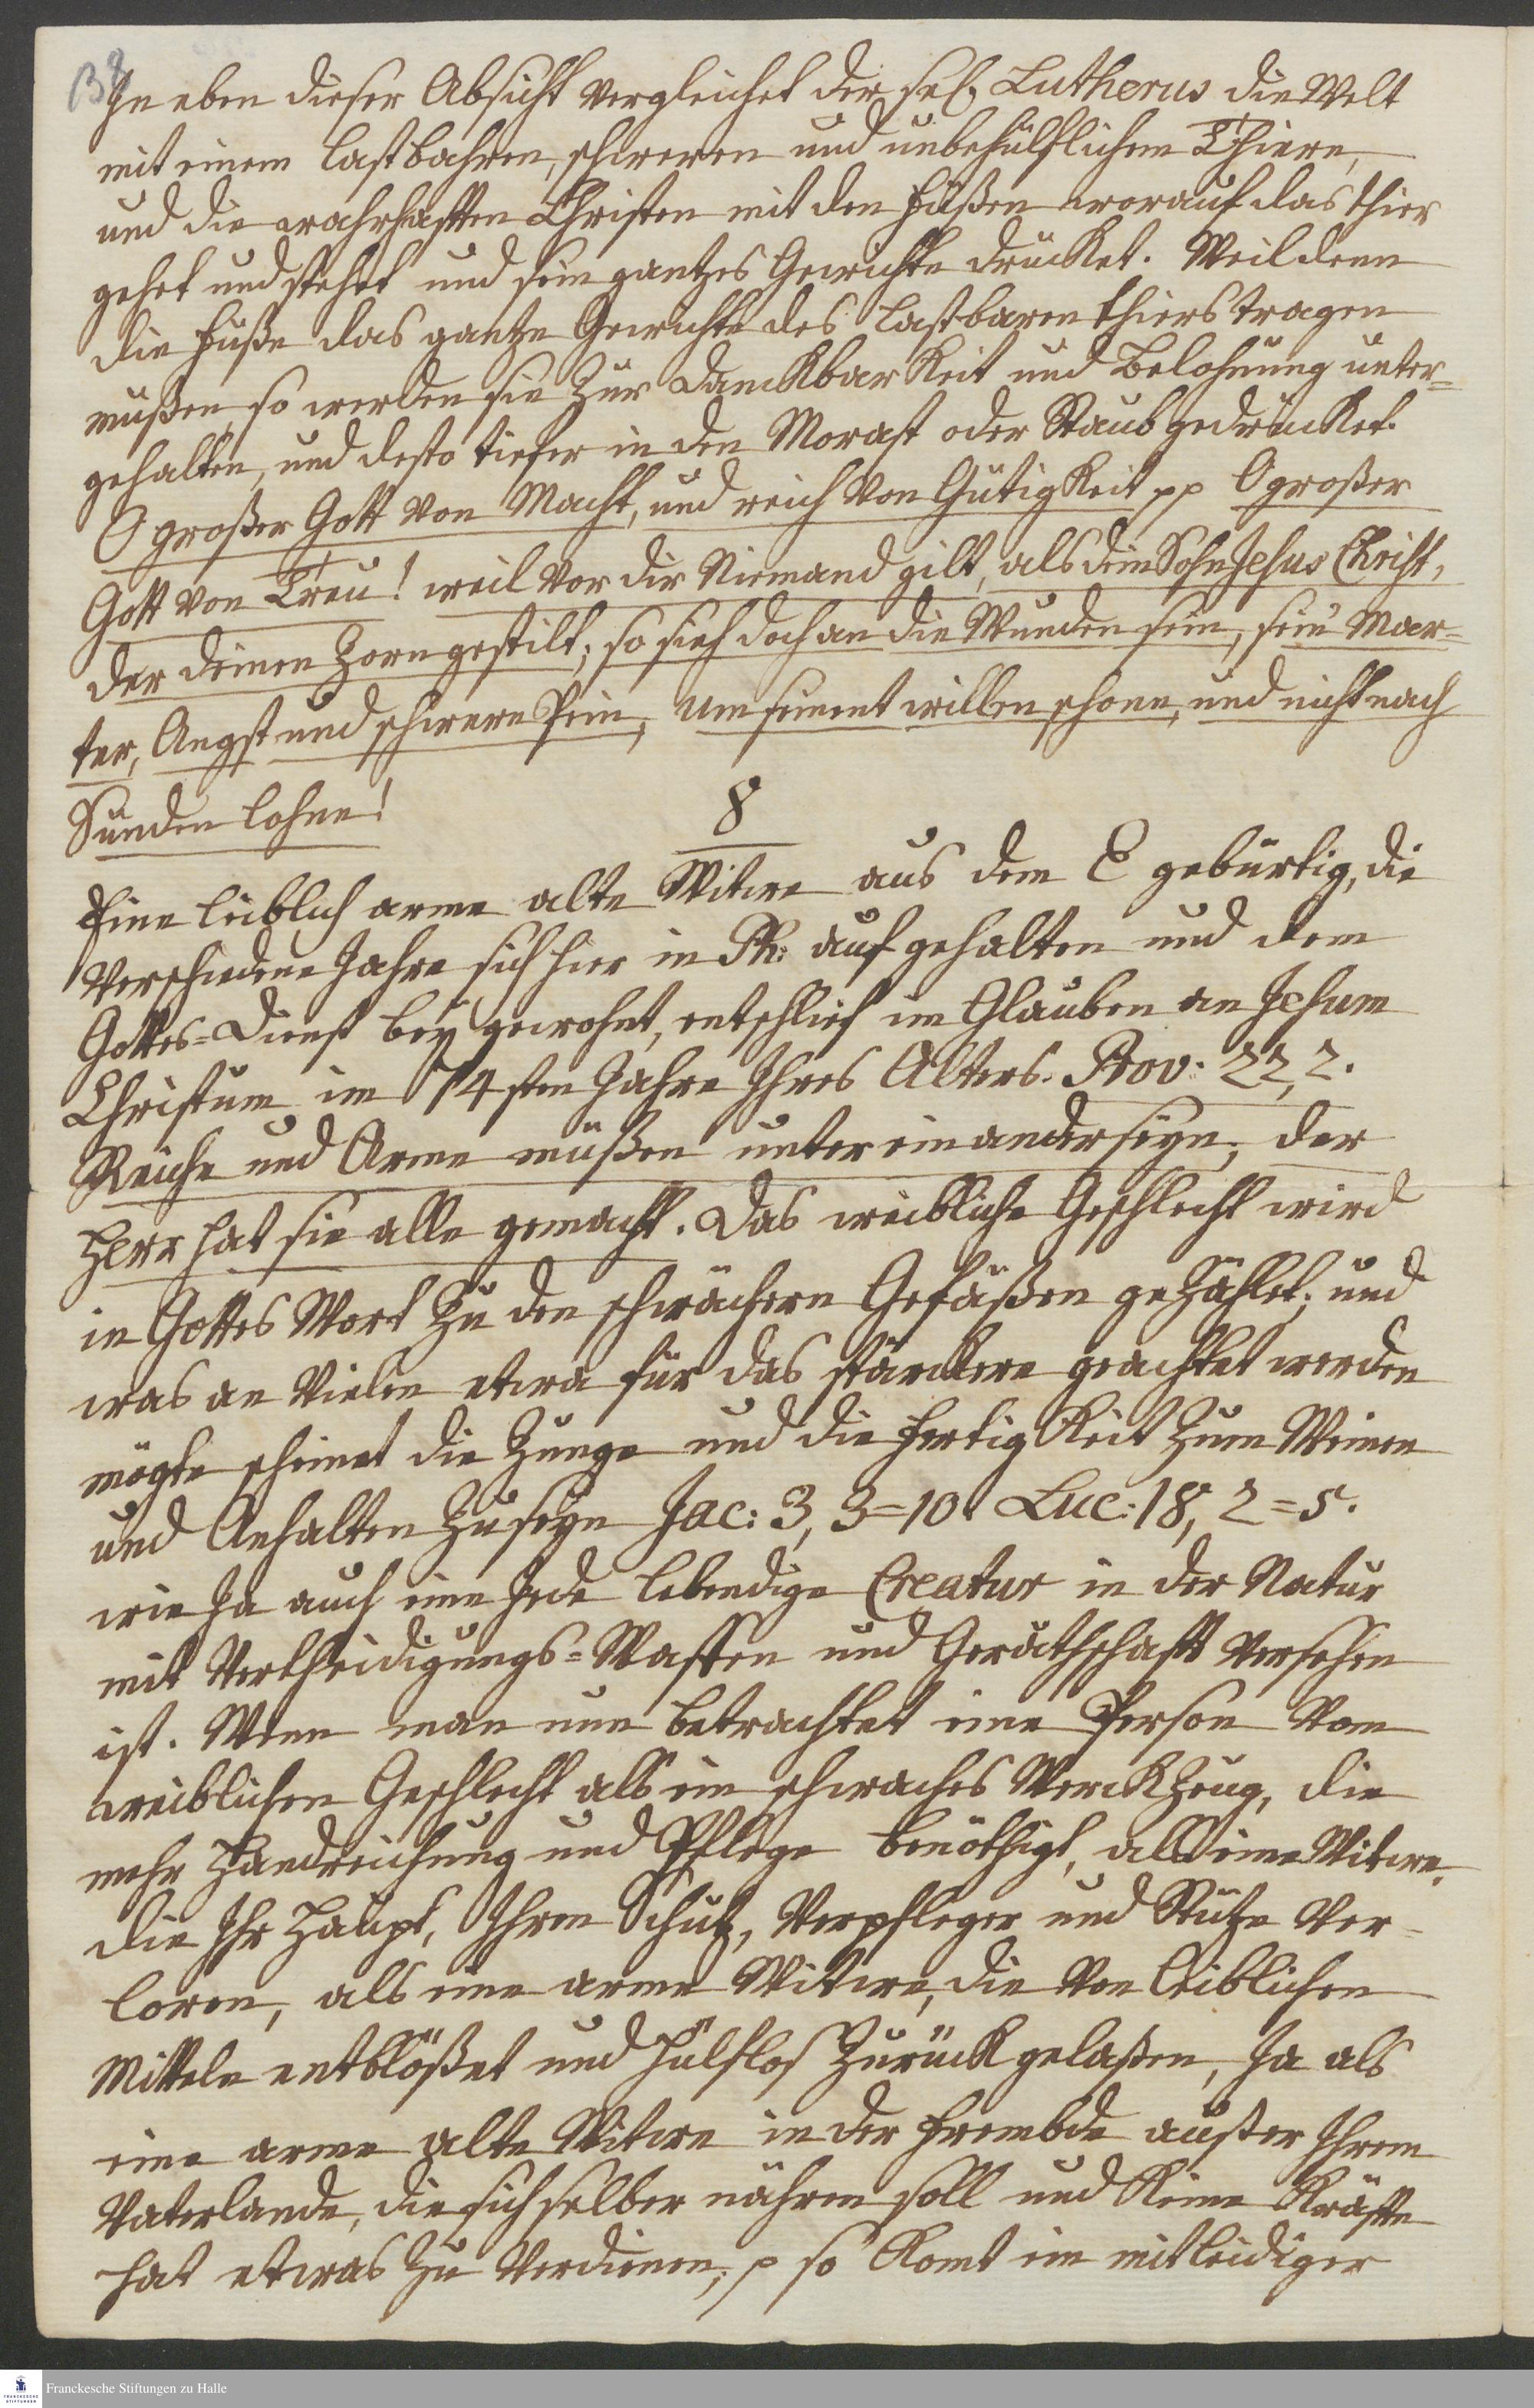 138
In eben dieser Absicht vergleichet der sel. Lutherus die Welt
mit einem lastbahren, schweren und unbehülflichen Thiere,
und die wahrhafften Christen mit den Füßen worauf das Thier
gehet und stehet und sein gantzes Gewichte drücket. Weil denn
die Füße das gantze Gewichte des lastbaren Thiers tragen
müßen, so werden sie zur Danckbarkeit und Belohnung unter-
gehalten, und desto tiefer in den Morast oder Staub gedrücket.
O großer Gott von Macht, und reich von Gütigkeit pp O großer
Gott von Treu! weil vor dir Niemand gilt, als dein Sohn Jesus Christ,
der deinen Zorn gestilt; so sieh doch an die Wunden sein, sein Mar-
ter, Angst und schwere Pein, Um seinent willen schone, und nicht nach
Sünden lohne!
8
Eine leiblich arme alte Witwe aus dem E gebürtig, die
verschiedene Jahre sich hier in Ph: aufgehalten und dem
Gottes-Dienst beÿ gewohnt, entschlief im Glauben an Jesum
Christum im 74sten Jahre Ihres Alters. Prov: 22, 2.
Reiche und Arme müßen unter einander seÿn, der
Herr hat sie alle gemacht. Das weibliche Geschlecht wird
in Gottes Wort zu den schwächern Gefäßen gezählet; und
was an Vielen etwa für das stärckere geachtet werden
mögte scheinet die Zunge und die Fertigkeit zum Weinen
und Anhalten zu seÿn Jac: 3, 3=10. Luc: 18, 2=5.
wie Ja auch eine Jede lebendige Creatur in der Natur
mit Vertheidigungs-Waffen und Geräthschafft versehen
ist. Wenn man nun betrachtet eine Person vom
weiblichen Geschlecht als ein schwaches Werckzeug, die
mehr Handreichung und Pflege benöthigt, als eine Witwe,
die Ihr Haupt, Ihren Schutz, Verpfleger und Stütze ver-
loren, als eine arme Witwe, die von leiblichen
Mitteln entblößet und hülflos zurück gelaßen, Ja als
eine arme alte Witwe in der Frembde außer Ihrem
Vaterlande, die sich selber nähren soll und keine Kräffte
hat etwas zu verdienen, p so komt ein mitleidiger
Franckesche Stiftungen zu Halle